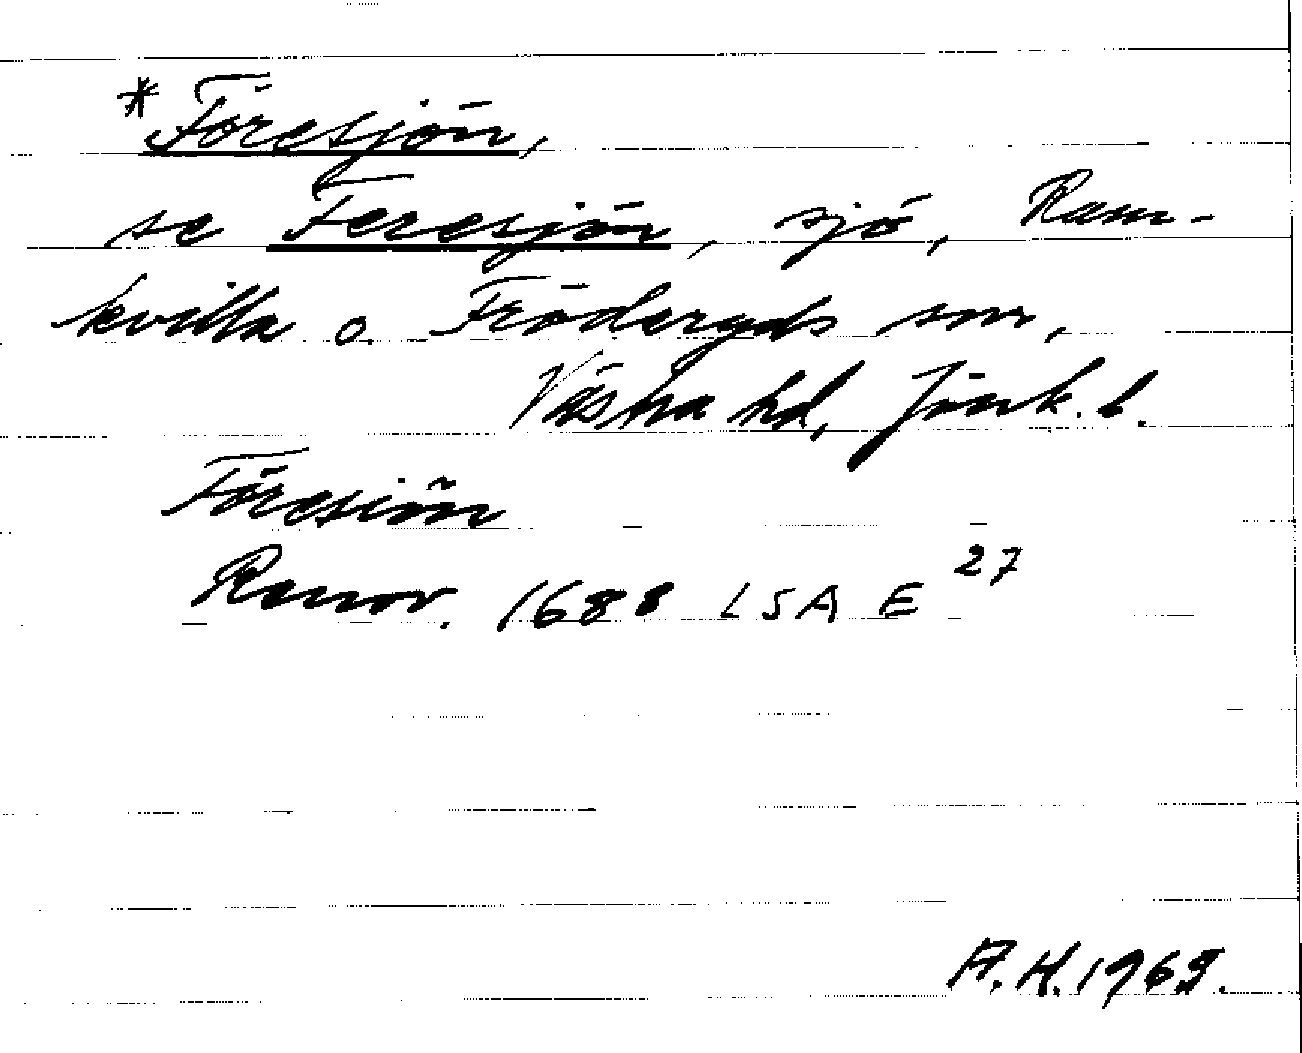 *Föresjön,
se Feresjön, sjö, Ram-
kvilla o. Fröderyds snr,
Västra hd, Jönk. l.
Föresiön
Ransr. 1688 LSA E 27
A.H. 1969.